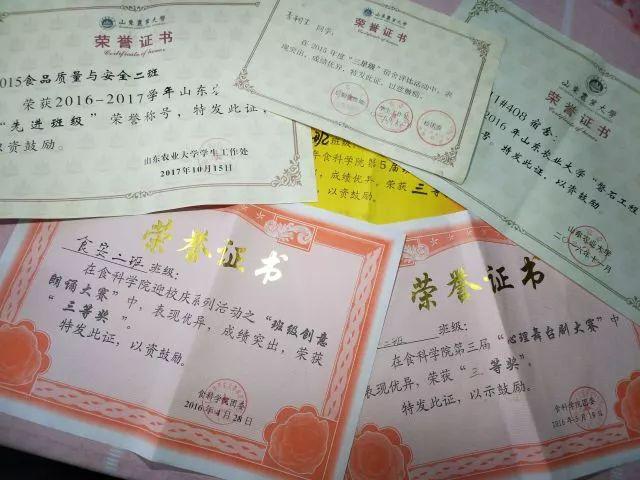 山东农业大学
荣誉证书
Certificate of honor
2015食品质量与安全二班
荣获2016-2017学年山东
“先进班级”荣誉称号，特发此证，
以资鼓励。
山东农业大学学生工作处
2017年10月15日
山东农业大学
荣誉证书
Certificate of honor
同学：
在2015年度“三星级”宿舍评比活动中，表
现突出，成绩优异，特发此证，以兹鼓励。
山东农业大学
荣誉证书
11#408宿舍
2016年山东农业大学“磐石工程
号。特发此证，以资鼓励。
山东农业大学
班级
食科学院第5届
，成绩优异，荣获三等
，以资鼓励。
荣誉证书
食安二班 班级：
在食科学院迎校庆系列活动之“班级创意
朗诵大赛”中，表现优异，成绩突出，荣获
“三等奖”。
特发此证，以资鼓励。
食科学院团委
2016年4月28日
荣誉证书
二班 班级：
在食科学院第三届“心理舞台剧大赛”中
表现优异，荣获“三等奖”。
特发此证，以示鼓励。
食科学院团委